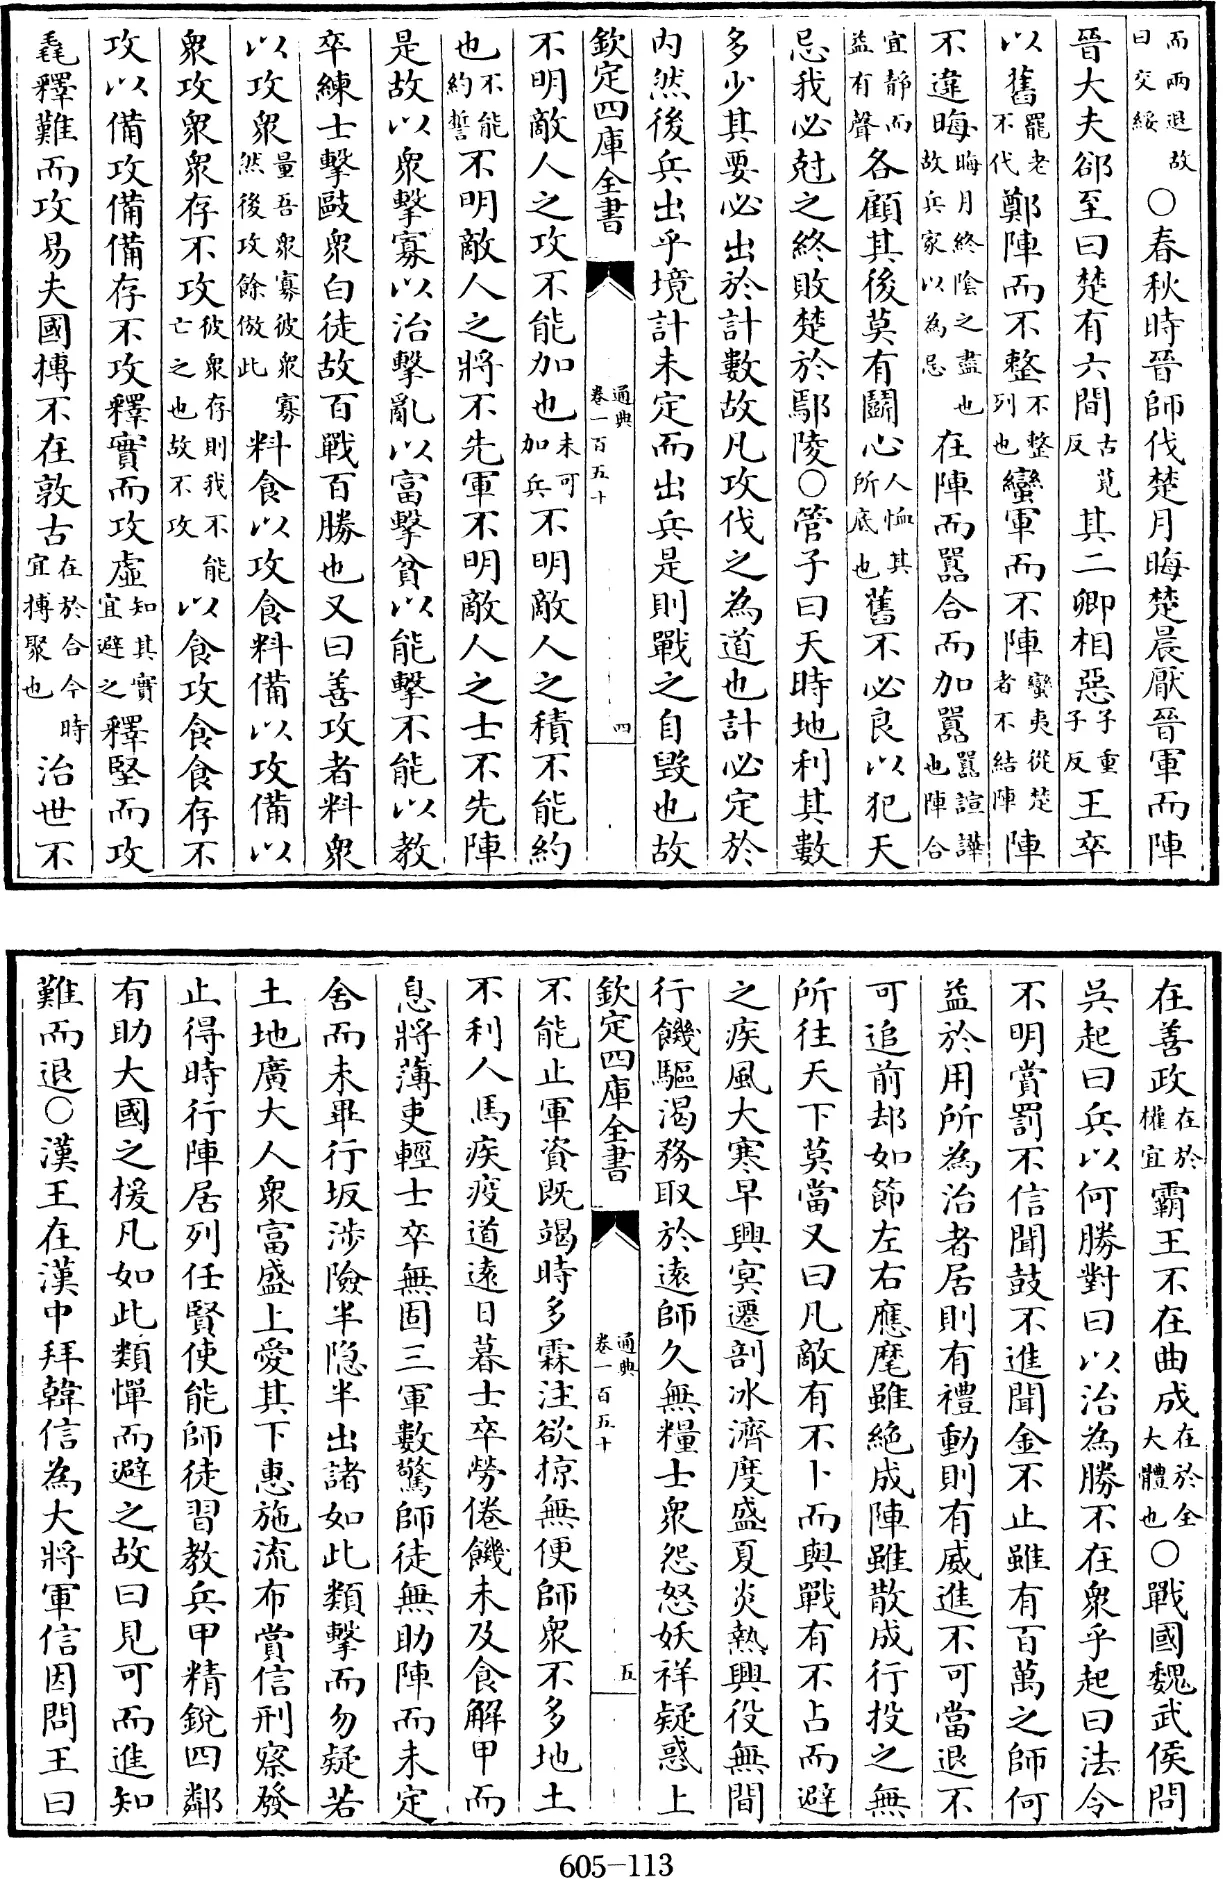 而兩退故曰交綏○春秋時晉師伐楚月晦楚晨厭晉軍而陣
晉大夫郤至曰楚有六間古莧反其二卿相惡子重子反王卒
以舊罷老不代鄭陣而不整不整列也蠻軍而不陣蠻夷從楚者不結陣陣
不違晦晦月終陰之盡也故兵家以為忌在陣而嚚合而加嚚嚚諠譁也陣合
宜靜而益有聲各顧其後莫有鬭心人恤其所底也舊不必良以犯天
忌我必尅之終敗楚於鄢陵○管子曰天時地利其數
多少其要必出於計數故凡攻伐之為道也計必定於
内然後兵出乎境計未定而出兵是則戰之自毀也故
欽定四庫全書
通典
卷一百五十
四
不明敵人之攻不能加也未可加兵不明敵人之積不能約
也不能約誓不明敵人之將不先軍不明敵人之士不先陣
是故以衆擊寡以治擊亂以富擊貧以能擊不能以教
卒練士擊敺衆白徒故百戰百勝也又曰善攻者料衆
以攻衆量吾衆寡彼衆寡然後攻餘倣此料食以攻食料備以攻備以
衆攻衆衆存不攻彼衆存則我不能亡之也故不攻以食攻食食存不
攻以備攻備備存不攻釋實而攻虛知其實宜避之釋堅而攻
毳釋難而攻易夫國摶不在敦古在於合今時宜摶聚也治世不
在善政在於權宜霸王不在曲成在於全大體也○戰國魏武侯問
吳起曰兵以何勝對曰以治為勝不在衆乎起曰法令
不明賞罰不信聞鼓不進聞金不止雖有百萬之師何
益於用所為治者居則有禮動則有威進不可當退不
可追前却如節左右應麾雖絶成陣雖散成行投之無
所往天下莫當又曰凡敵有不卜而與戰有不占而避
之疾風大寒早興寅遷剖冰濟度盛夏炎熱興役無間
行饑驅渴務取於遠師久無糧士衆怨怒妖祥疑惑上
欽定四庫全書
通典
卷一百五十
五
不能止軍資既竭時多霖注欲掠無便師衆不多地土
不利人馬疾疫道遠日暮士卒勞倦饑未及食解甲而
息將薄吏輕士卒無固三軍數驚師徒無助陣而未定
舍而未畢行坂涉險半隐半出諸如此類擊而勿疑若
土地廣大人衆富盛上愛其下惠施流布賞信刑察發
止得時行陣居列任賢使能師徒習教兵甲精銳四鄰
有助大國之援凡如此類憚而避之故曰見可而進知
難而退○漢王在漢中拜韓信為大將軍信因問王曰
605-113